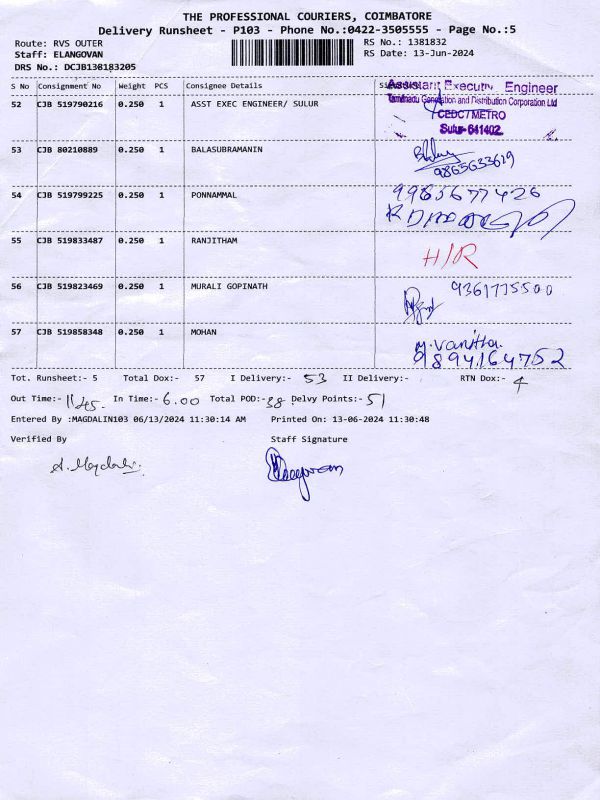 THE PROFESSIONAL COURIERS, COIMBATORE
Delivery Runsheet - P103 - Phone No.:0422-3505555 - Page No.:5
Route: RVS OUTER
Staff: ELANGOVAN
DRS No.: DCJB138183205
RS No.: 1381832
RS Date: 13-Jun-2024
S No Consignment No Weight PCS Consignee Details
52 CJB 519790216 0.250 1 ASST EXEC ENGINEER/ SULUR
Assistant Executive Engineer
Tamilnadu Generation and Distribution Corporation Ltd
CEDC/METRO
Sulur-641402
53 CJB 80210889 0.250 1 BALASUBRAMANIN
9865633619
54 CJB 519799225 0.250 1 PONNAMMAL
9965677426
55 CJB 519833487 0.250 1 RANJITHAM H/R
56 CJB 519823469 0.250 1 MURALI GOPINATH 9361775500
57 CJB 519858348 0.250 1 MOHAN M. Vanitha.
9894164752
Tot. Runsheet:- 5 Total Dox:- 57 I Delivery:- 53 II Delivery:- RTN Dox:- 4
Out Time:- 11.45. In Time:- 6.00 Total POD:- 38 Delvy Points:- 51
Entered By :MAGDALIN103 06/13/2024 11:30:14 AM Printed On: 13-06-2024 11:30:48
Verified By Staff Signature